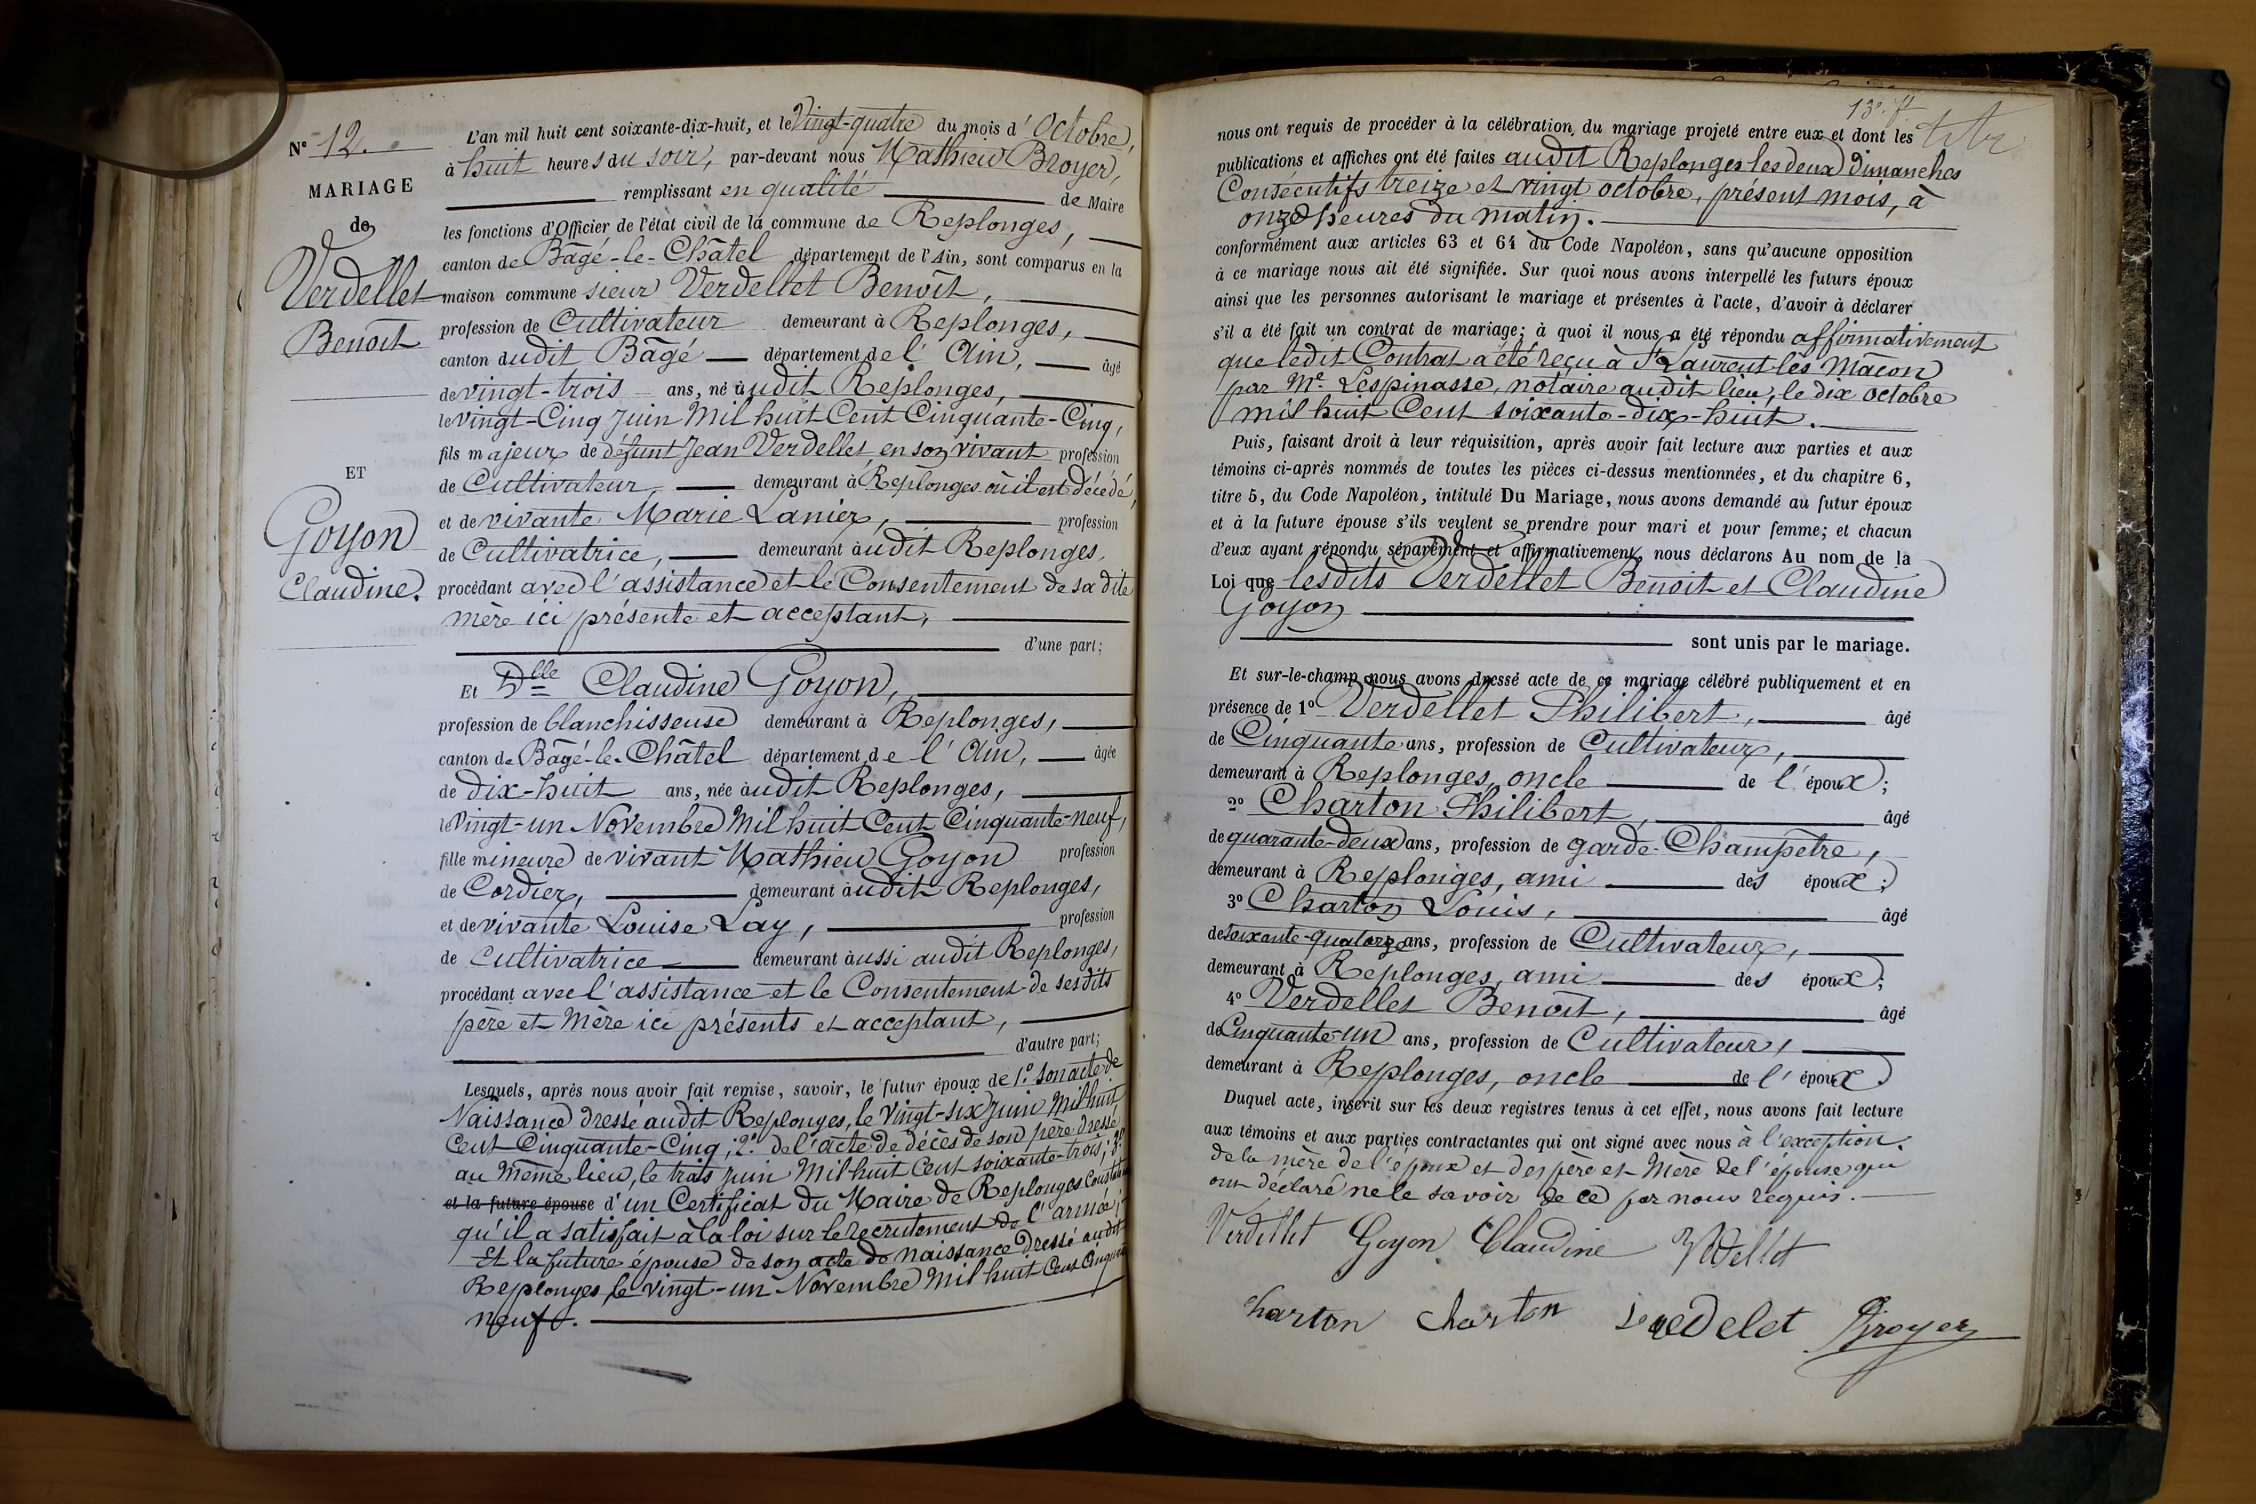 N° 12.
MARIAGE
de
Verdellet
Benoit
ET
Goyon
Claudine.
L'an mil huit cent soixante-dix-huit, et le Vingt-quatre du mois d'Octobre,
à huit heures du soir, par-devant nous Mathieu Broyer,
remplissant en qualité de Maire
les fonctions d'Officier de l'état civil de la commune de Replonges,
canton de Bâgé-le-Châtel département de l'Ain, sont comparus en la
maison commune sieur Verdellet Benoit,
profession de Cultivateur demeurant à Replonges,
canton dudit Bâgé département de l'Ain, âgé
de vingt-trois ans, né audit Replonges,
le vingt-Cinq Juin Mil huit Cent Cinquante-Cinq,
fils majeur de défunt Jean Verdellet, en son vivant profession
de Cultivateur, demeurant à Replonges où il est décédé,
et de vivante Marie Lanier, profession
de Cultivatrice, demeurant audit Replonges,
procédant avec l'assistance et le Consentement de sa dite
mère ici présente et acceptant,
d'une part;
Et Dlle Claudine Goyon,
profession de blanchisseuse demeurant à Replonges,
canton de Bâgé-le-Châtel département de l'Ain, âgée
de dix-huit ans, née audit Replonges,
le Vingt-un Novembre Mil huit Cent Cinquante-neuf,
fille mineure de vivant Mathieu Goyon profession
de Cordier, demeurant audit Replonges,
et de vivante Louise Lay, profession
de Cultivatrice demeurant aussi audit Replonges,
procédant avec l'assistance et le Consentement de ses dits
père et Mère ici présents et acceptant,
d'autre part;
Lesquels, après nous avoir fait remise, savoir, le futur époux de 1° son acte de
Naissance dressé audit Replonges, le Vingt-six Juin Mil huit
Cent Cinquante-Cinq; 2° de l'acte de décès de son père dressé
au même lieu, le trois juin Mil huit Cent soixante-trois; 3°
et la future épouse d'un Certificat du Maire de Replonges Constatant
qu'il a satisfait à la loi sur le recrutement de l'armée;
Et la future épouse de son acte de Naissance dressé audit
Replonges le vingt-un Novembre Mil huit Cent Cinquante
neuf.
13e ft
nous ont requis de procéder à la célébration du mariage projeté entre eux et dont les
publications et affiches ont été faites audit Replonges les deux Dimanches
Consécutifs treize et vingt octobre, présent mois, à
onze heures du matin.
conformément aux articles 63 et 64 du Code Napoléon, sans qu'aucune opposition
à ce mariage nous ait été signifiée. Sur quoi nous avons interpellé les futurs époux
ainsi que les personnes autorisant le mariage et présentes à l'acte, d'avoir à déclarer
s'il a été fait un contrat de mariage; à quoi il nous a été répondu affirmativement
que ledit Contrat a été reçu à St Laurent-lès Mâcon
par Me Lespinasse, notaire audit lieu, le dix octobre
mil huit Cent soixante-dix-huit.
Puis, faisant droit à leur réquisition, après avoir fait lecture aux parties et aux
témoins ci-après nommés de toutes les pièces ci-dessus mentionnées, et du chapitre 6,
titre 5, du Code Napoléon, intitulé Du Mariage, nous avons demandé au futur époux
et à la future épouse s'ils veulent se prendre pour mari et pour femme; et chacun
d'eux ayant répondu séparément et affirmativement, nous déclarons Au nom de la
Loi que lesdits Verdellet Benoit et Claudine
Goyon
sont unis par le mariage.
Et sur-le-champ nous avons dressé acte de ce mariage célébré publiquement et en
présence de 1° Verdellet Philibert, âgé
de Cinquante ans, profession de Cultivateur,
demeurant à Replonges, oncle de l'époux;
2° Charton Philibert, âgé
de quarante-deux ans, profession de garde-Champêtre,
demeurant à Replonges, ami des époux;
3° Charton Louis, âgé
de soixante-quatorze ans, profession de Cultivateur,
demeurant à Replonges, ami des époux;
4° Verdellet Benoit, âgé
de Cinquante-un ans, profession de Cultivateur,
demeurant à Replonges, oncle de l'époux.
Duquel acte, inscrit sur les deux registres tenus à cet effet, nous avons fait lecture
aux témoins et aux parties contractantes qui ont signé avec nous à l'exception
de la mère de l'époux et des père et Mère de l'épouse qui
ont déclaré ne le savoir de ce par nous requis.
Verdellet Goyon Claudine
Charton Charton Broyer